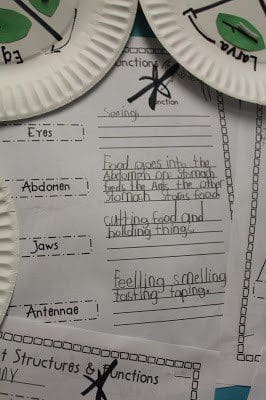 Eg
Larva
Functions
Function
Seeing.
Eyes
Food goes into the
Abdomen on stomach
feeds the Ants the other
stomach stores food
Abdomen
cutting food and
building things.
Jaws
Feelling smelling
tasting taping.
Antennae
t Structures & Functions